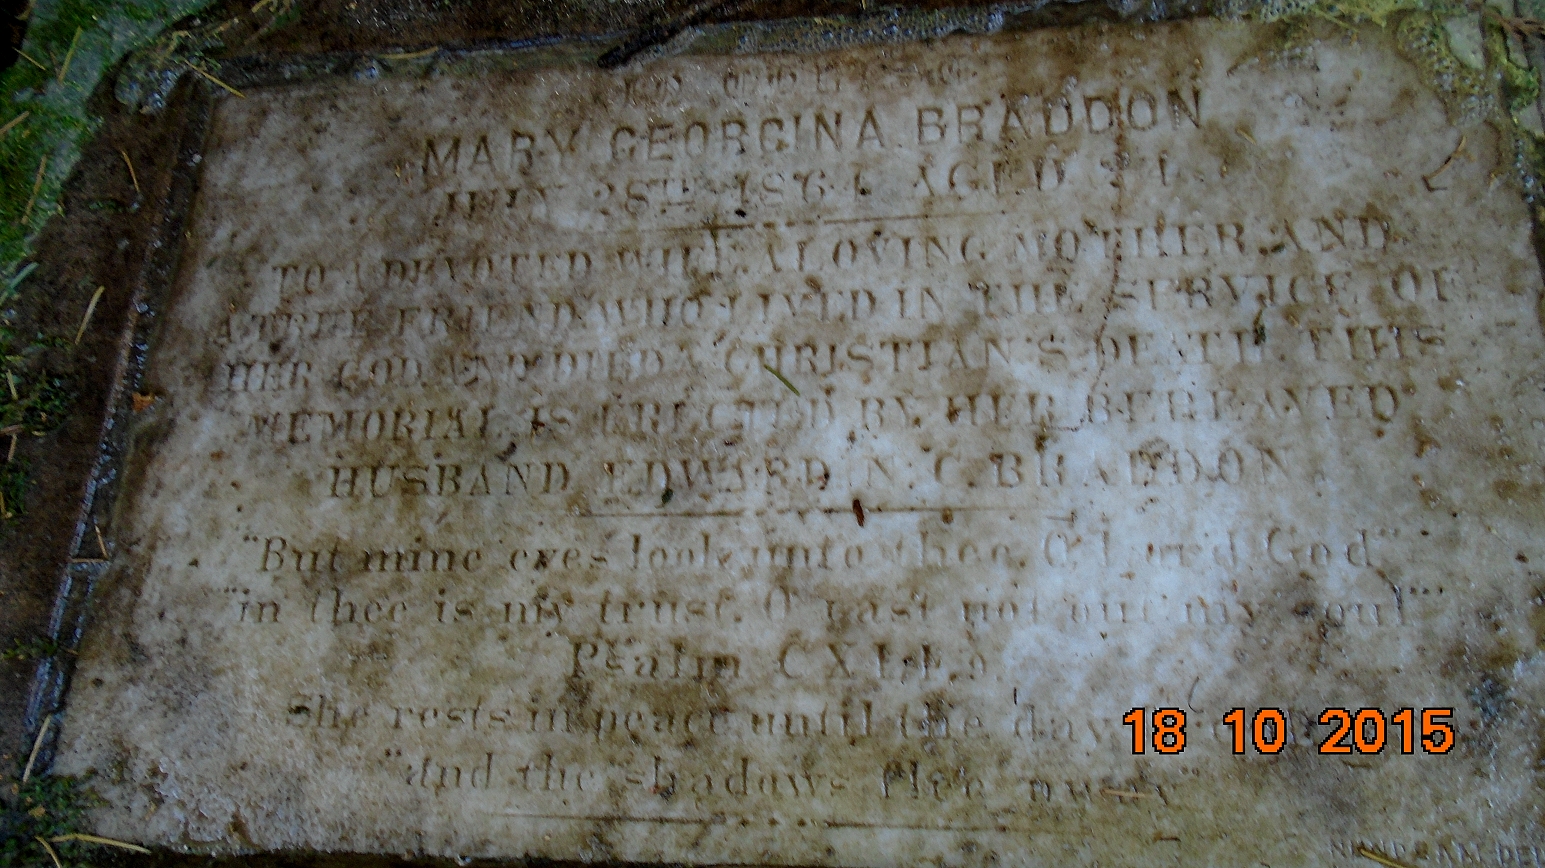 MARY GEORGINA BRADDON
JULY 28TH 1864 AGED
TO A DEVOTED WIFE, A LOVING MOTHER AND
A TRUE FRIEND, WHO LIVED IN THE SERVICE OF
HER GOD AND DIED A CHRISTIAN'S DEATH. THIS
MEMORIAL IS ERECTED BY HER BEREAVED
HUSBAND EDWARD N. C. BRADDON
"But mine eyes look unto thee O Lord God"
"in thee is my trust. O cast not out my soul"
Psalm CXLI.9.
She rests in peace until the day
"and the shadows flee away"
18 10 2015